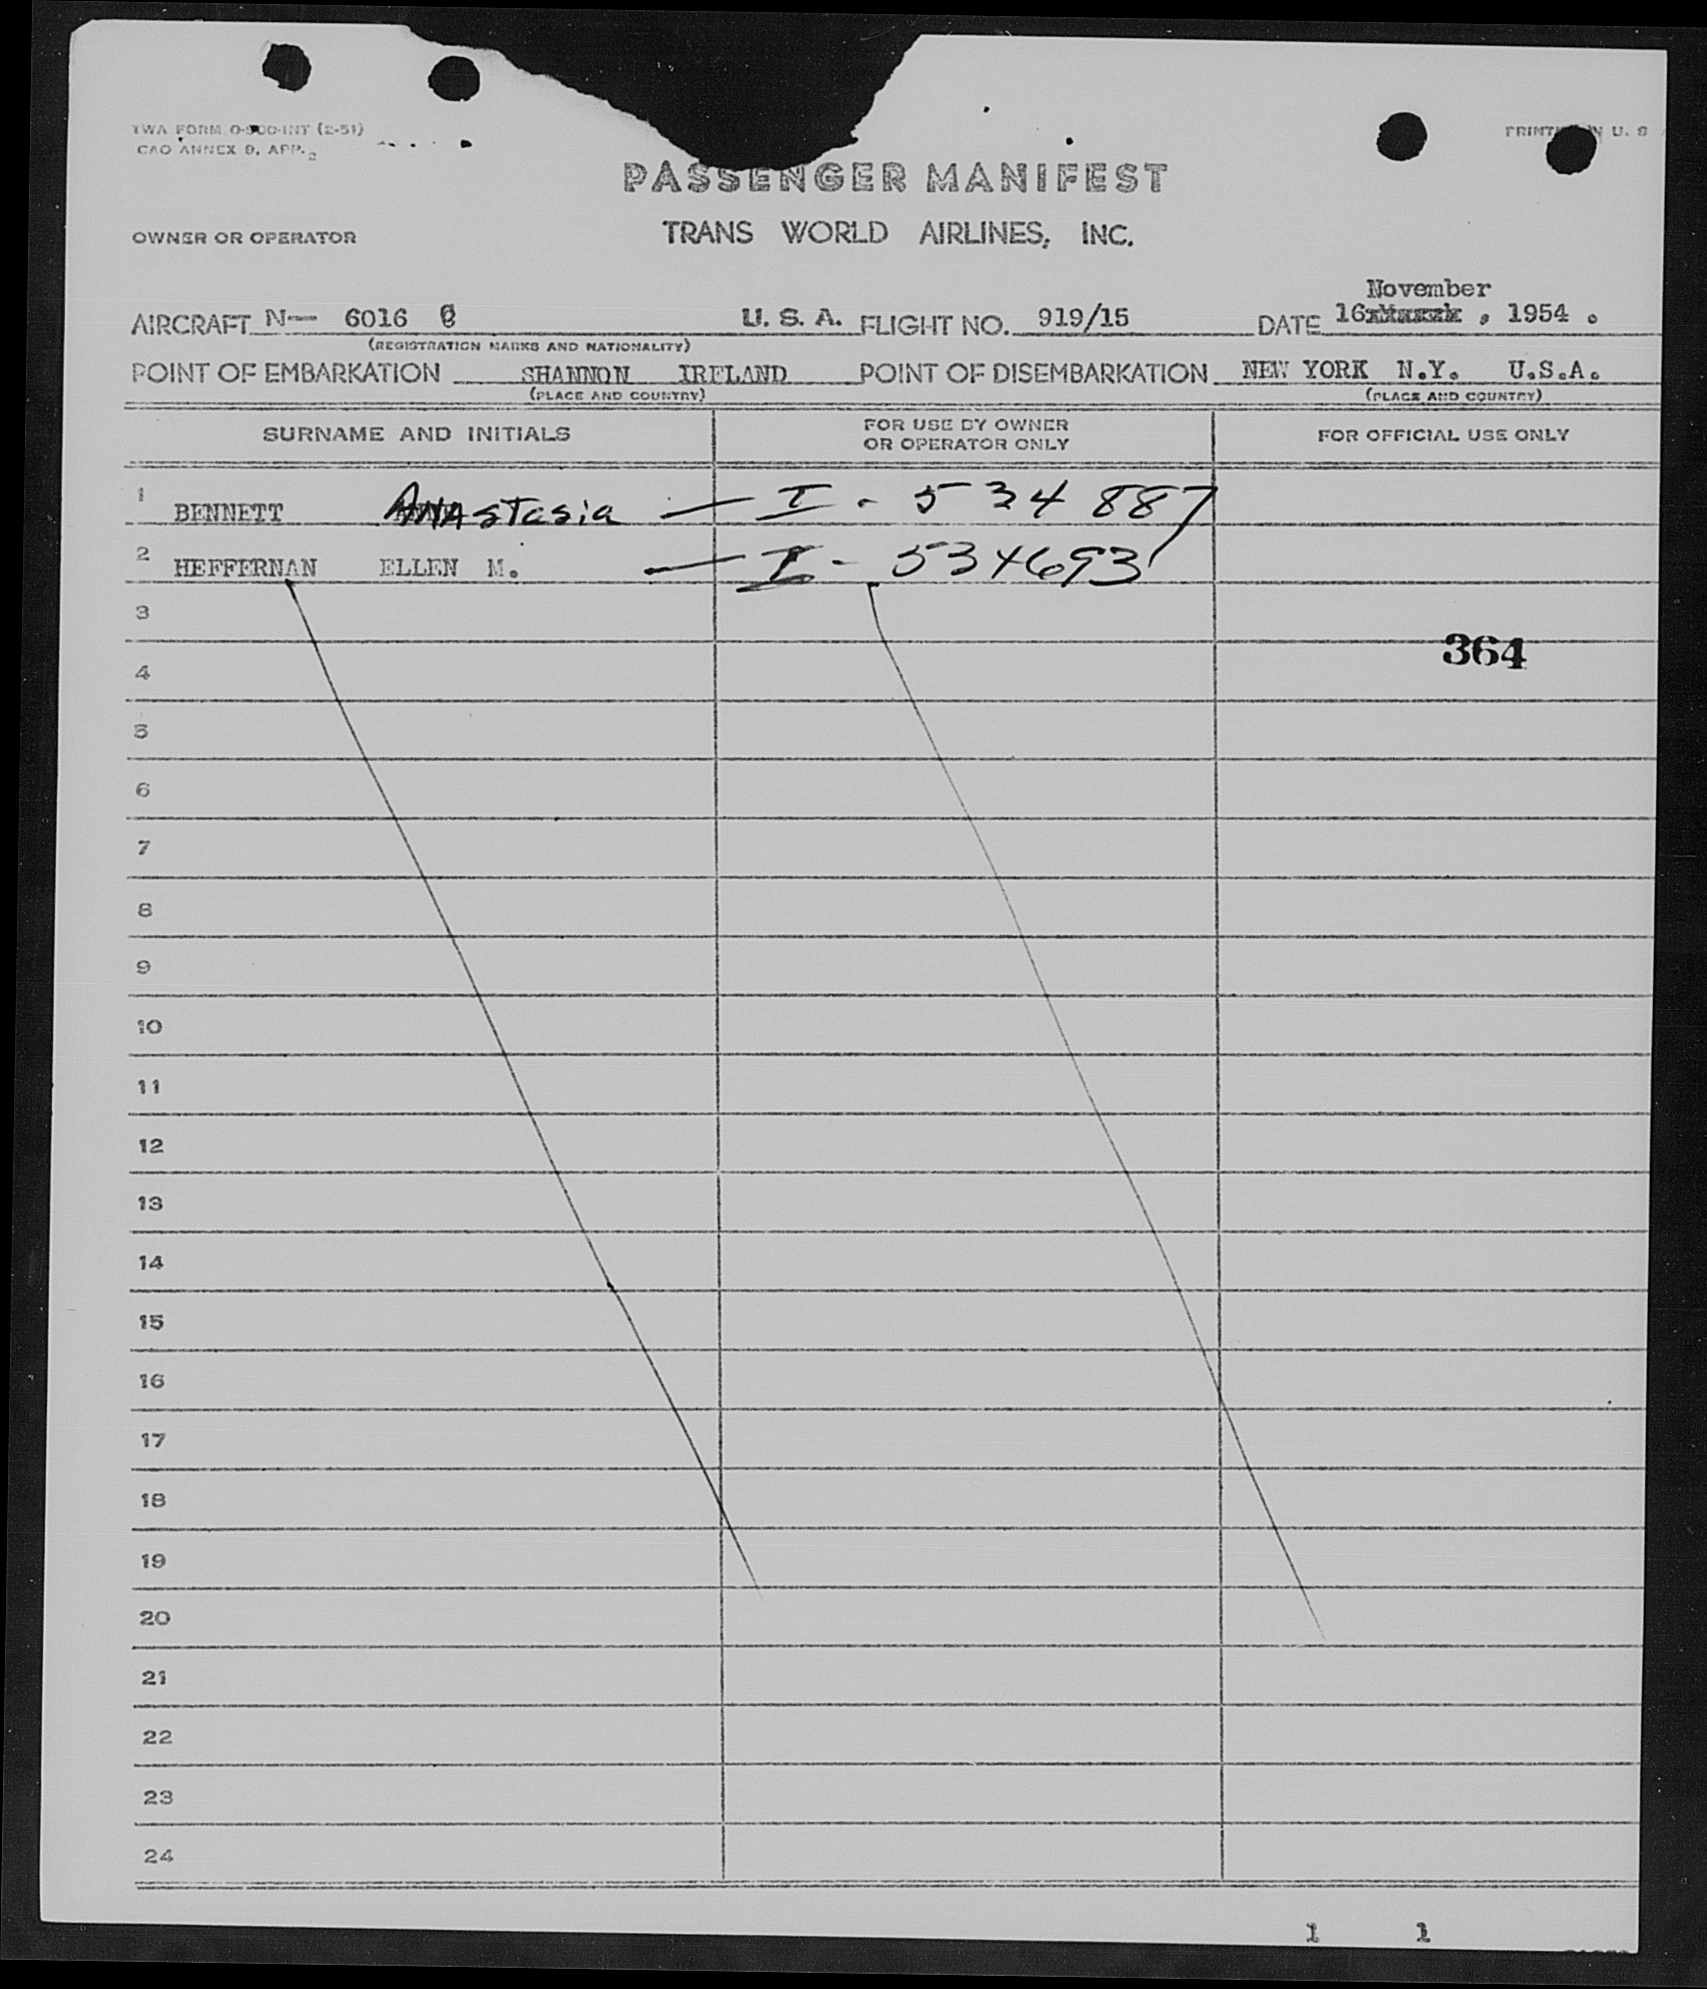 TWA FORM O-900-INT (2-51)
CAO ANNEX 9, APP. 2
PRINTED IN U. S
PASSENGER MANIFEST
OWNER OR OPERATOR
TRANS WORLD AIRLINES, INC.
November
AIRCRAFT N— 6016 C U. S. A. FLIGHT NO. 919/15 DATE 16 , 1954 .
(REGISTRATION MARKS AND NATIONALITY)
POINT OF EMBARKATION SHANNON IRELAND POINT OF DISEMBARKATION NEW YORK N.Y. U.S.A.
(PLACE AND COUNTRY) (PLACE AND COUNTRY)
SURNAME AND INITIALS
FOR USE BY OWNER
OR OPERATOR ONLY
FOR OFFICIAL USE ONLY
1 BENNETT ANAsTasia — I - 534 887
2 HEFFERNAN ELLEN M. — I - 534693
3
364
4
5
6
7
8
9
10
11
12
13
14
15
16
17
18
19
20
21
22
23
24
1 1